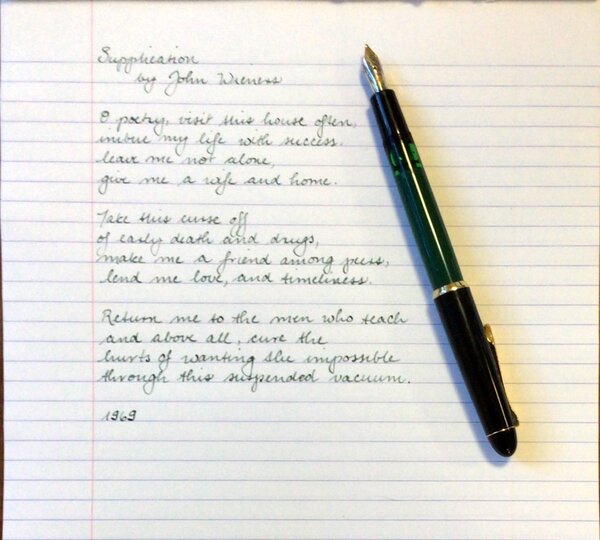 Supplication
by John Wieners
O poetry, visit this house often,
imbue my life with success.
leave me not alone,
give me a wife and home.
Take this curse off
of early death and drugs,
make me a friend among peers,
lend me love, and timeliness.
Return me to the men who teach
and above all, cure the
hurts of wanting the impossible
through this suspended vacuum.
1969